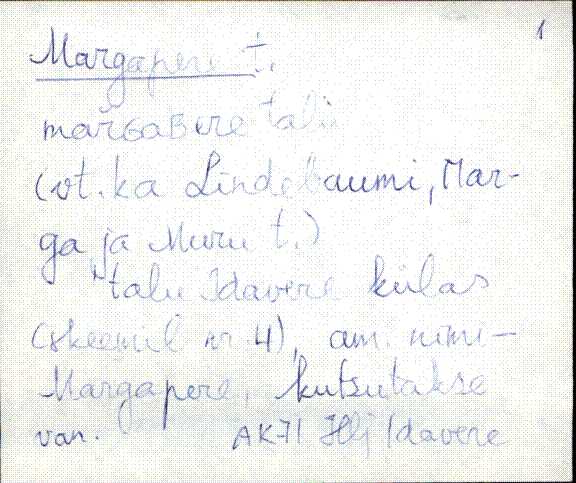 1
Margapere t.
marGaBere talu
(vt. ka Lindebaumi, Mar-
ga ja Muru t.)
talu Idavere külas
(skeemil nr. 4), am. nimi –
Margapere, kutsutakse
van. AK71 Hlj Idavere